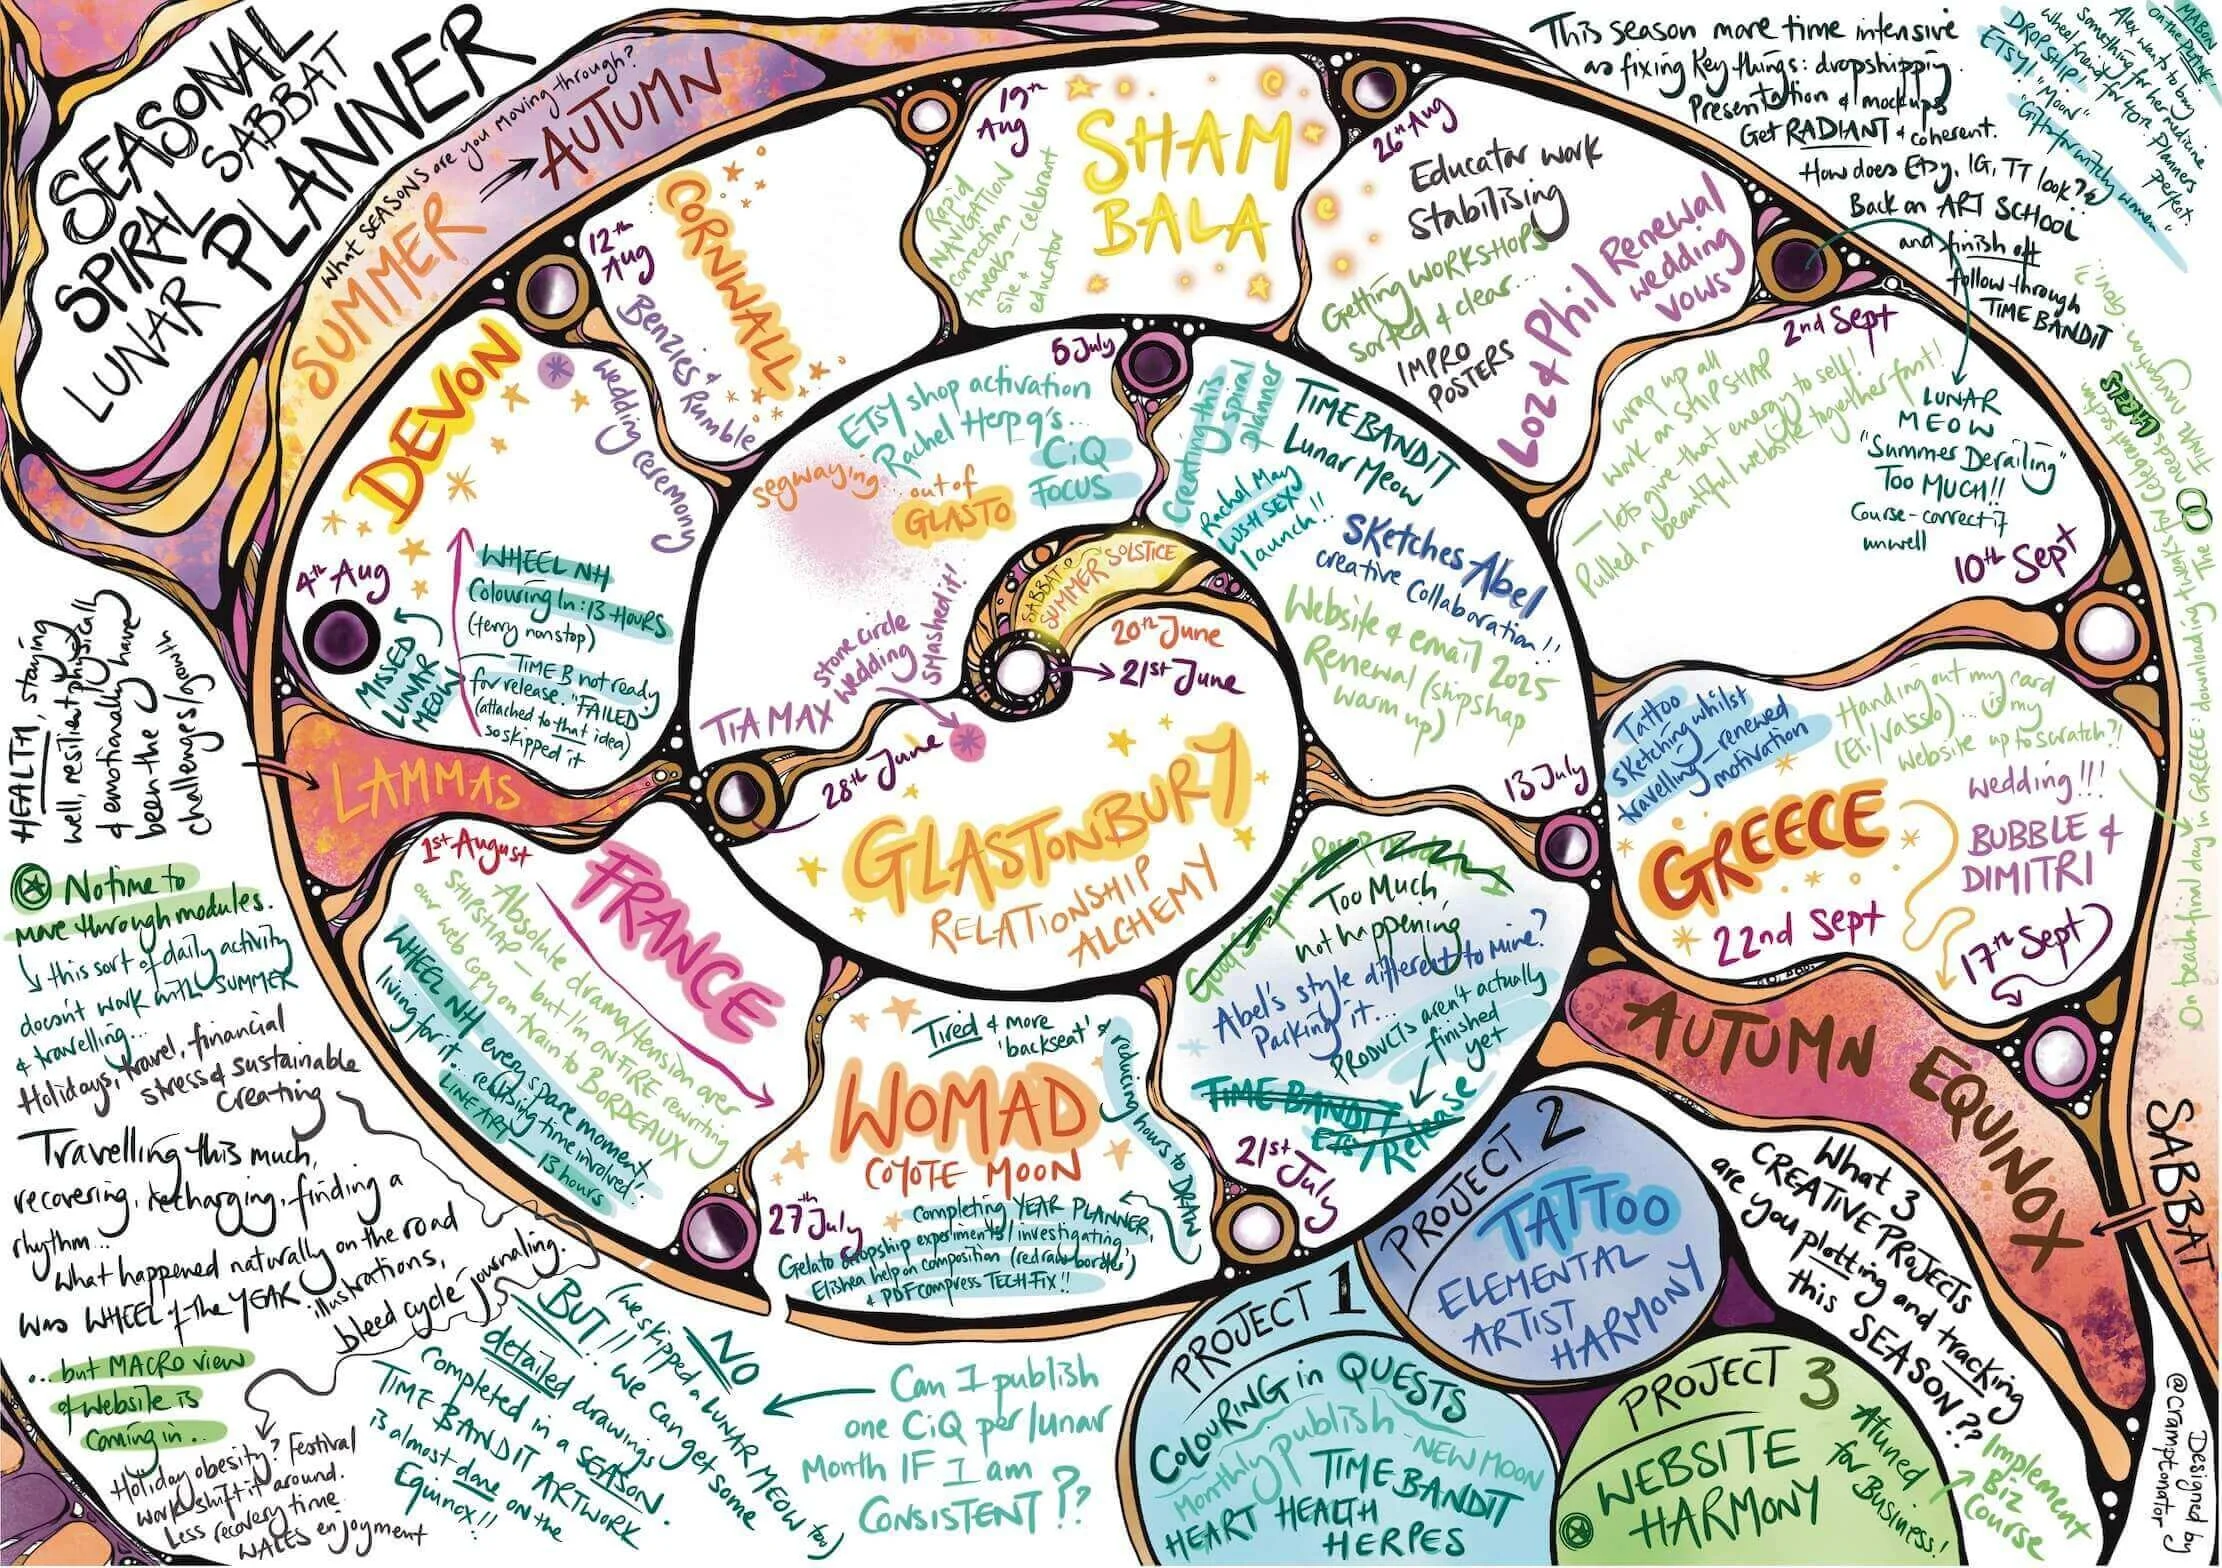 SEASONAL
SPIRAL SABBAT
LUNAR PLANNER
What SEASONS are you moving through?
SUMMER
AUTUMN
SABBAT: 0
SUMMER SOLSTICE
20th June
21st June
GLASTONBURY
RELATIONSHIP
ALCHEMY
28th June
TIA MAX
stone circle
wedding
smashed it!
segwaying
out of
GLASTO
ETSY shop activation
Rachel Herp q's...
CiQ
FOCUS
5 July
Creating this
spiral
planner
TIME BANDIT
Lunar Meow
Rachel May
LUSH SEX
launch!!
Sketches Abel
creative Collaboration!!
Website & email 2025
Renewal (shipshap
warm up)
13 July
Too Much
not happening
Abel's style different to mine?
Parking it...
PRODUCTS aren't actually
finished
yet
TIME BANDIT
Etsy Release
21st July
Tired & more
'backseat' &
reducing hours to DRAW
WOMAD
COYOTE MOON
completing YEAR PLANNER,
Gelato dropship experiments/investigating,
Elishea help on composition (redraw border)
& PDF compress TECH FIX!!
27th July
FRANCE
1st August
Absolute drama/tension over
SHIPSHAP - but I'm ON FIRE rewriting
our web copy on train to BORDEAUX
WHEEL NH every spare moment
living for it... realising time involved!
LINE ART - 13 hours
LAMMAS
4th Aug
DEVON
wedding ceremony
WHEEL NH
Colouring In: 13 HOURS
(ferry nonstop)
TIME B not ready
for release. "FAILED"
(attached to that idea)
so skipped it
MISSED
LUNAR
MEOW
12th
Aug
CORNWALL
Benzies &
Rumble
19th
Aug
Rapid
NAVIGATION
correction
tweaks - celebrant
site &
educator
SHAM
BALA
26th Aug
Educator work
Stabilising
Getting WORKSHOPS
sorted & clear...
IMPRO
POSTERS
Loz & Phil Renewal
wedding
vows
2nd Sept
wrap up all
work on SHIPSHAP
- lets give that energy to self!
Pulled a beautiful website together for it!
LUNAR
MEOW
"Summer Derailing"
Too MUCH!!
Course-correct if
unwell
10th Sept
Tattoo
sketching whilst
travelling - renewed
motivation
Handing out my card
... is my
website up to scratch?!
GREECE
wedding!!!
BUBBLE &
DIMITRI
17th Sept
22nd Sept
AUTUMN EQUINOX
SABBAT
This season more time intensive
as fixing key things: dropshipping
Presentation & mockups
Get RADIANT & coherent.
How does Etsy, IG, TT look?
Back on ART SCHOOL
and finish off
follow through
TIME BANDIT
MABON
on the PLANE!
Alex wants to buy
something for her medicine
wheel friend for 40th. Planners
Perfect.
DROPSHIP!
ETSY! "Moon"
"Gifts for witchy women"
On beach final day in GREECE: downloading tweaks for Celebrant section
HEALTH, staying
well, resilient physically
& emotionally have
been the
challenges/growth
No time to
move through modules.
this sort of daily activity
doesn't work with SUMMER
& travelling...
Holidays, travel, financial
stress & sustainable
creating
Travelling this much,
recovering, recharging, finding a
rhythm...
What happened naturally on the road
was WHEEL of the YEAR illustrations,
bleed cycle journaling.
...but MACRO view
of website is
coming in..
Holiday obesity? Festival
work shift it around.
Less recovery time.
WALES enjoyment
NO
(we skipped a LUNAR MEOW too)
BUT!! We can get some
detailed drawings
completed in a SEASON.
TIME BANDIT ARTWORK
is almost done on the
Equinox!!
Can I publish
one CiQ per/lunar
Month IF I am
CONSISTENT??
PROJECT 1
COLOURING in QUESTS
Monthly publish - NEW MOON
TIME BANDIT
HEART HEALTH
HERPES
PROJECT 2
TATTOO
ELEMENTAL
ARTIST
HARMONY
PROJECT 3
WEBSITE
HARMONY
Attuned
for Business!
Implement
Biz
Course
What 3
CREATIVE PROJECTS
are you plotting and tracking
this SEASON??
Designed by
@cramptonator